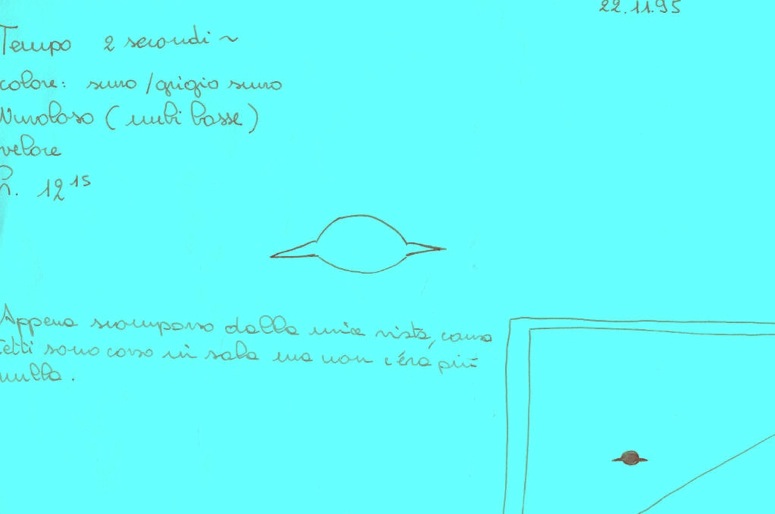 22.11.95
Tempo 2 secondi ~
colore: scuro / grigio scuro
Nuvoloso ( nubi basse )
veloce
h. 12 15
Appena scomparso dalla mia vista, causa
tetti sono corso in sala ma non c'era più
nulla.